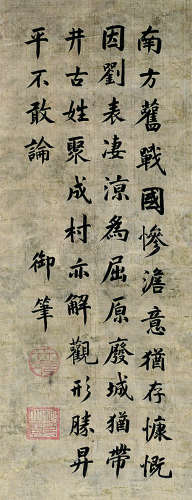 南方舊戰國慘澹意猶存慷慨
因劉表淒涼為屈原廢城猶帶
井古姓聚成村亦解觀形勝昇
平不敢論
御筆